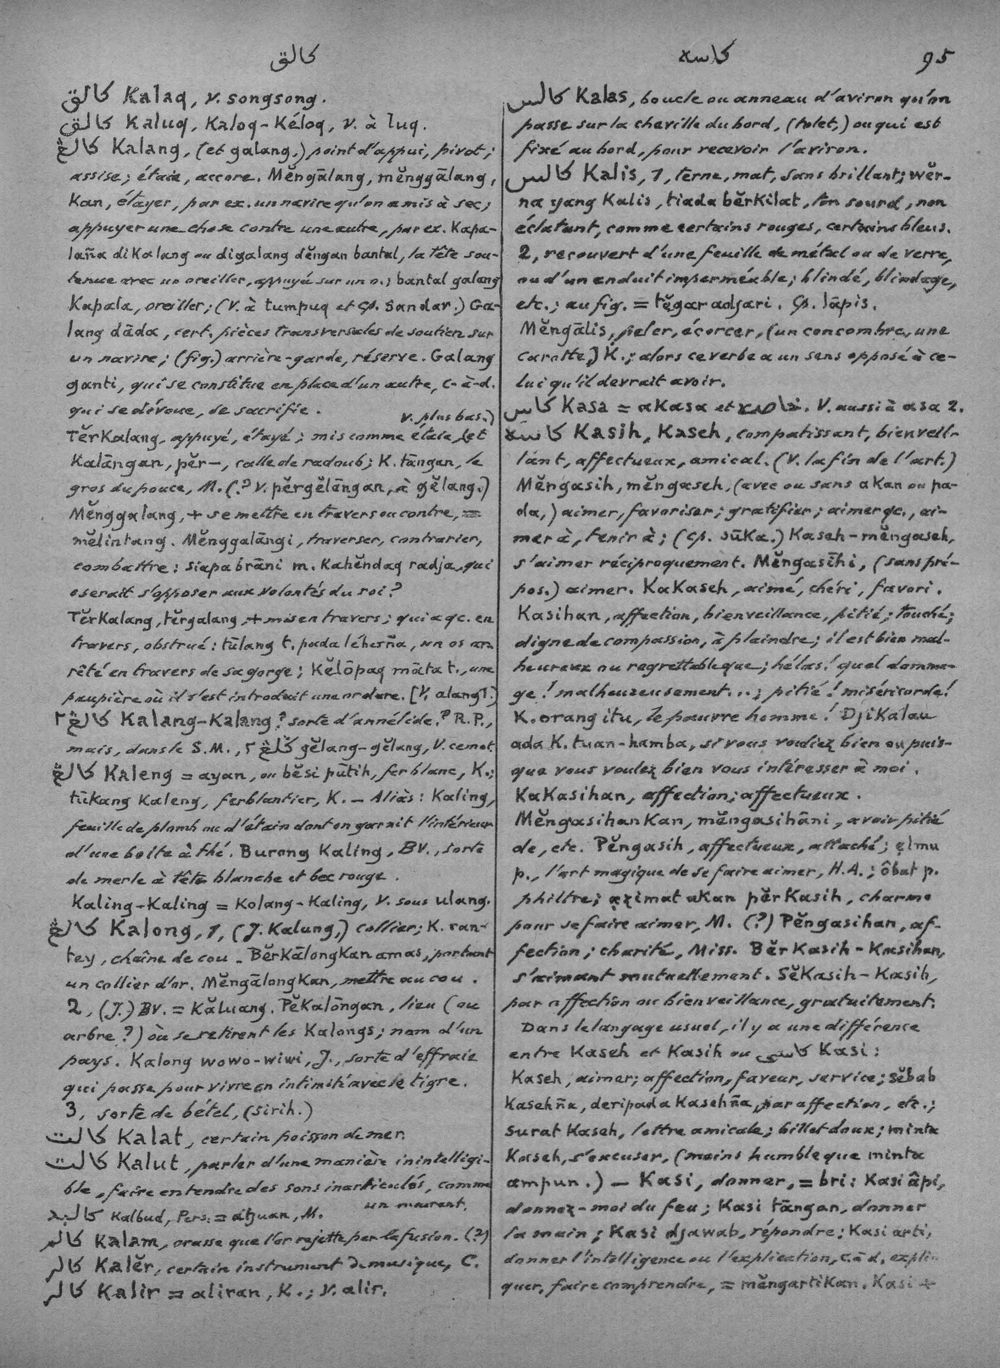 كالق
كاسه
95
كالق Kalaq, v. songsong.
كالق Kaluq, Kaloq-Kéloq, v. à luq.
كالڠ Kalang, (et galang,) point d'appui, pivot;
assise; étaie, accore. Měngālang, měnggālang,
Kan, étayer, par ex. un navire qu'on a mis à sec;
appuyer une chose contre une autre, par ex. Kapa-
laña diKalang ou digalang děngan bantal, la tête sou-
tenue avec un oreiller, appuyé sur un o.; bantal galang
Kapala, oreiller; (v. à tumpuq et cp. sandar.) Ga-
lang dāda, cert. pièces transversales de soutien sur
un navire; (fig.) arrière-garde, réserve. Galang
ganti, qui se constitue en place d'un autre, c-à-d.
qui se dévoue, se sacrifie.
v. plus bas.)
TěrKalang, appuyé, étayé; mis comme étaie, (et
Kalāngan, pěr—, calle de radoub; K. tāngan, le
gros du pouce, M. (? v. pěrgělāngan, à gělang.)
Měnggalang, + se mettre en travers ou contre, =
mělintang. Měnggalāngi, traverser, contrarier,
combattre: siapa brāni m. Kahěndaq radja, qui
oserait s'opposer aux volontés du roi?
TěrKalang, těrgalang, + mis en travers; qui a qc. en
travers, obstrué: tūlang t. pada léherña, un os ar-
rêté en travers de sa gorge; Kělōpaq māta t., une
paupière où il s'est introduit une ordure. [V. alang 1.]
كالڠ٢ Kalang-Kalang? sorte d'annélide.? R.P.,
mais, dans le S.M., گلڠ٢ gělang-gělang, v. ce mot
كالڠ Kaleng = ayan, ou běsi pūtih, fer blanc, K.;
tūkang Kaleng, ferblantier, K. — Aliàs: Kaling,
feuille de plomb ou d'étain dont on garnit l'intérieur
d'une boîte à thé. Burong Kaling, BV., sorte
de merle à tête blanche et bec rouge.
Kaling-Kaling = Kolang-Kaling, v. sous ulang.
كالڠ Kalong, 1, (J. Kalung,) collier; K. ran-
tey, chaîne de cou. BěrKālongKan amas, portant
un collier d'or. MěngālongKan, mettre au cou.
2, (J.) BV. = Kǎluang. PěKalōngan, lieu (ou
arbre?) où se retirent les Kalongs; nom d'un
pays. Kalong wowo-wiwi, J., sorte d'effraie
qui passe pour vivre en intimité avec le tigre.
3, sorte de bétel, (sirih.)
كالت Kalat, certain poisson de mer.
كالت Kalut, parler d'une manière inintelligi-
ble, faire entendre des sons inarticulés, comme
un mourant.
كالبد Kalbud, Pers. = atjuan, M.
كالم Kalam, crasse que l'or rejette par la fusion. (?)
كالر Kalěr, certain instrument de musique, C.
كالر Kalir = aliran, K.; v. alir.
كالس Kalas, boucle ou anneau d'aviron qu'on
passe sur la cheville du bord, (tolet,) ou qui est
fixé au bord, pour recevoir l'aviron.
كالس Kalis, 1, terne, mat, sans brillant; wěr-
na yang Kalis, tiada běrKilat, ton sourd, non
éclatant, comme certains rouges, certains bleus.
2, recouvert d'une feuille de métal ou de verre,
ou d'un enduit imperméable; blindé, blindage,
etc.; au fig. = těgar adjari. Cp. lāpis.
Měngālis, peler, écorcer, (un concombre, une
carotte,) K.; alors ce verbe a un sens opposé à ce-
lui qu'il devrait avoir.
كاس Kasa = aKasa et خاصه. V. aussi à asa 2.
كاسه Kasih, Kaseh, compatissant, bienveil-
lant, affectueux, amical. (V. la fin de l'art.)
Měngasih, měngaseh, (avec ou sans aKan ou pa-
da,) aimer, favoriser; gratifier; aimer qc., ai-
mer à, tenir à; (cp. sūKa.) Kaseh-měngaseh,
s'aimer réciproquement. Měngasīhi, (sans pré-
pos.) aimer. KaKaseh, aimé, chéri, favori.
Kasihan, affection, bienveillance, pitié; touché;
digne de compassion, à plaindre; il est bien mal-
heureux ou regrettable que; hélas! quel domma-
ge! malheureusement...; pitié! miséricorde!
K. orang itu, le pauvre homme! DjiKalau
ada K. tuan-hamba, si vous voulez bien ou puis-
que vous voulez bien vous intéresser à moi.
KaKasihan, affection; affectueux.
MěngasihanKan, měngasihāni, avoir pitié
de, etc. Pěngasih, affectueux, attaché; elmu
p., l'art magique de se faire aimer, H.A.; ôbat p.
philtre; azimat aKan pěrKasih, charme
pour se faire aimer, M. (?) Pěngasihan, af-
fection; charité, Miss. BěrKasih-Kasihan,
s'aimant mutuellement. SěKasih-Kasih,
par affection ou bienveillance, gratuitement.
Dans le langage usuel, il y a une différence
entre Kaseh et Kasih ou كاسى Kasi:
Kaseh, aimer; affection, faveur, service; sěbab
Kasehña, deripada Kasehña, par affection, etc.;
surat Kaseh, lettre amicale; billet doux; minta
Kaseh, s'excuser, (moins humble que minta
ampun.) — Kasi, donner, = bri: Kasi âpi,
donnez-moi du feu; Kasi tāngan, donner
la main; Kasi djawab, répondre; Kasi arti,
donner l'intelligence ou l'explication, c.à d. expli-
quer, faire comprendre, = měngartiKan. Kasi +